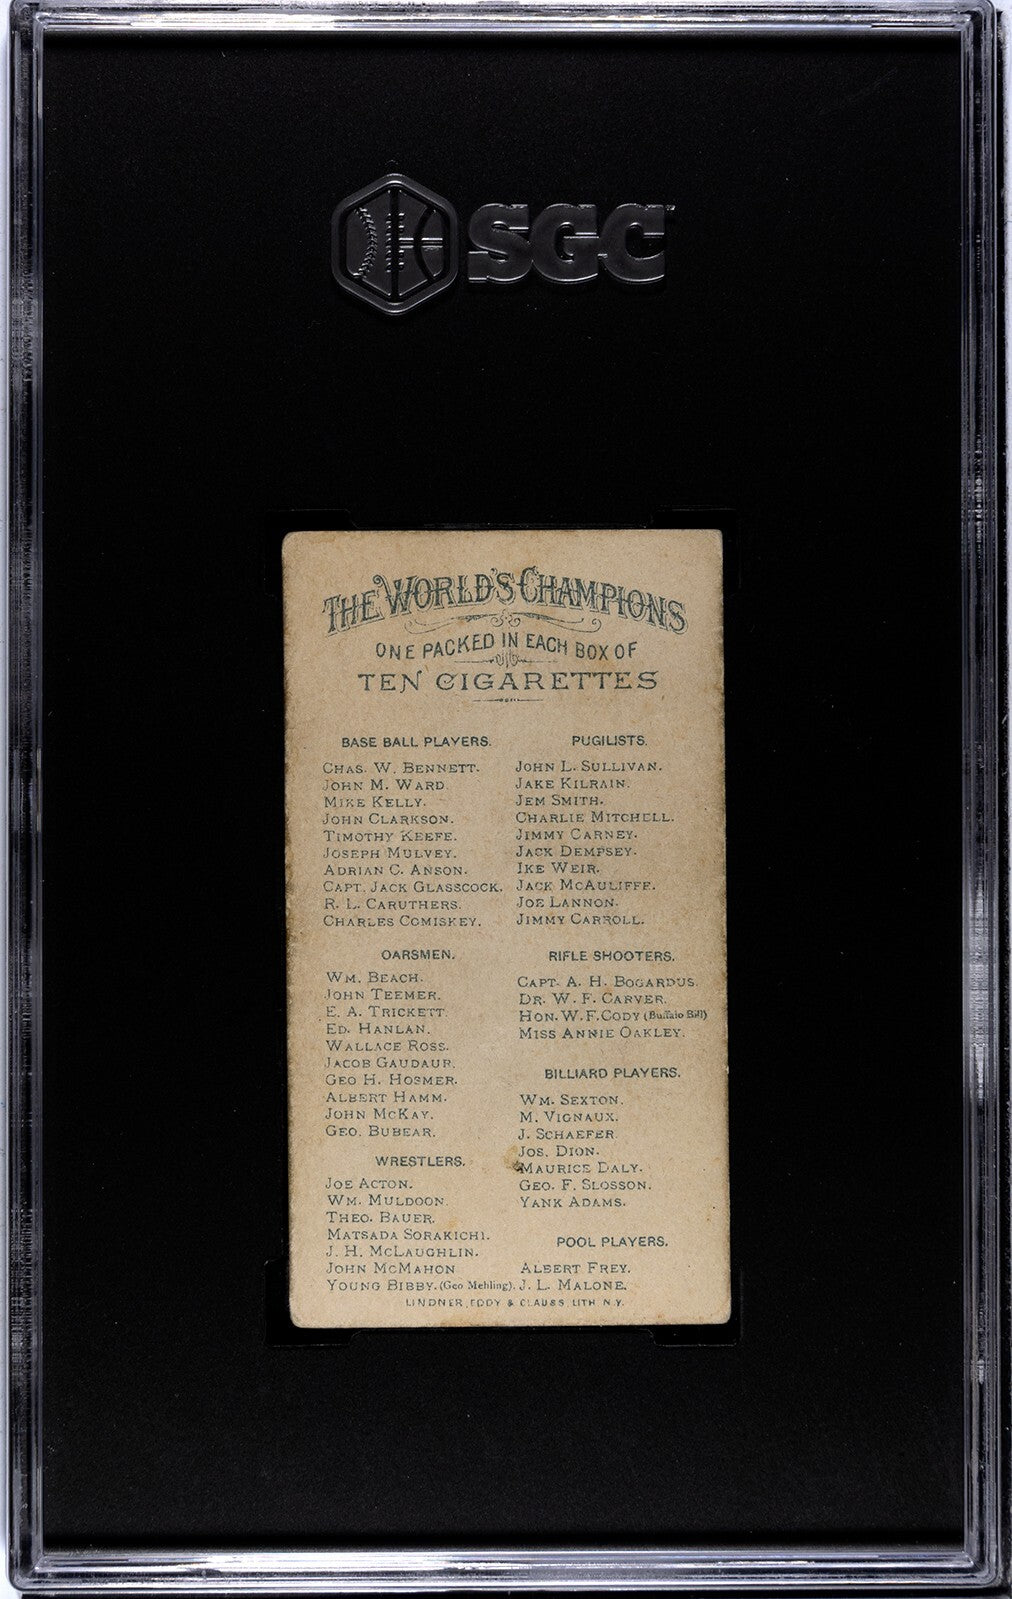 SGC
THE WORLD'S CHAMPIONS
ONE PACKED IN EACH BOX OF
TEN CIGARETTES
BASE BALL PLAYERS.
CHAS. W. BENNETT.
JOHN M. WARD
MIKE KELLY.
JOHN CLARKSON.
TIMOTHY KEEFE.
JOSEPH MULVEY.
ADRIAN C. ANSON.
CAPT. JACK GLASSCOCK.
R. L. CARUTHERS.
CHARLES COMISKEY.
OARSMEN.
WM. BEACH.
JOHN TEEMER.
E. A. TRICKETT.
ED. HANLAN.
WALLACE ROSS.
JACOB GAUDAUR.
GEO H. HOSMER.
ALBERT HAMM.
JOHN MCKAY.
GEO. BUBEAR.
WRESTLERS.
JOE ACTON.
WM. MULDOON.
THEO. BAUER.
MATSADA SORAKICHI.
J. H. MCLAUGHLIN.
JOHN MCMAHON
YOUNG BIBBY. (Geo Mehling).
PUGILISTS.
JOHN L. SULLIVAN.
JAKE KILRAIN.
JEM SMITH.
CHARLIE MITCHELL.
JIMMY CARNEY.
JACK DEMPSEY.
IKE WEIR.
JACK MCAULIFFE.
JOE LANNON.
JIMMY CARROLL.
RIFLE SHOOTERS.
CAPT. A. H. BOGARDUS.
DR. W. F. CARVER.
HON. W. F. CODY (Buffalo Bill)
MISS ANNIE OAKLEY.
BILLIARD PLAYERS.
WM. SEXTON.
M. VIGNAUX.
J. SCHAEFER.
JOS. DION.
MAURICE DALY.
GEO. F. SLOSSON.
YANK ADAMS.
POOL PLAYERS.
ALBERT FREY.
J. L. MALONE.
LINDNER, EDDY & CLAUSS, LITH N.Y.